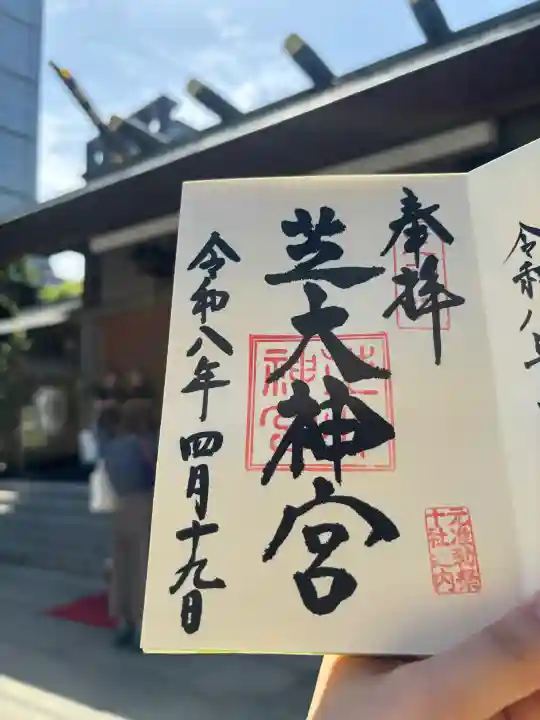 奉拝
芝大神宮
令和八年四月十九日
元准勅祭
十社之内
令和八年